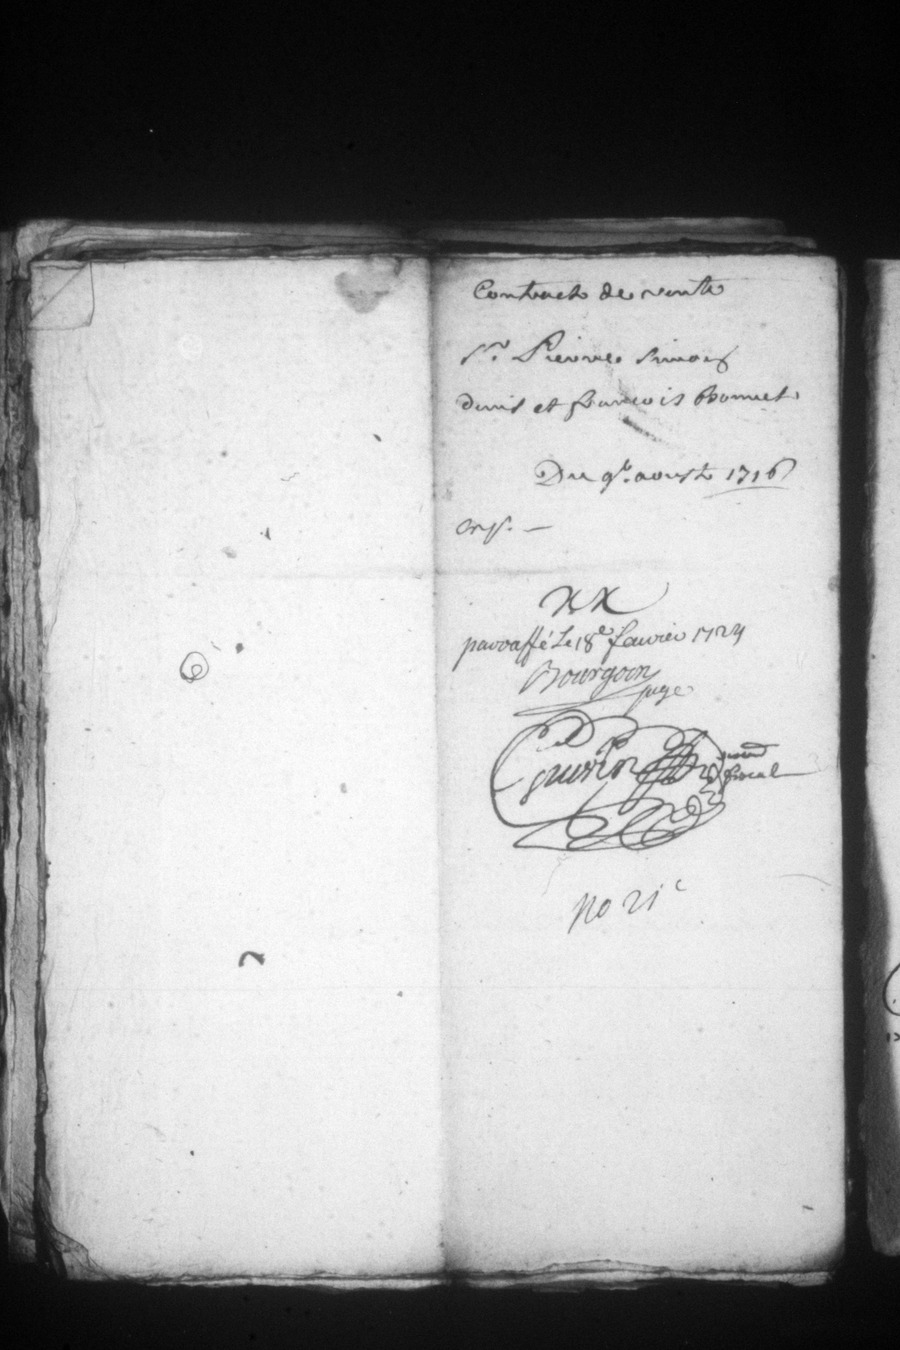 Contract de vente
Sr. Pierre Simon
denis et francois Bonnet
Du 9e. aoust 1716
parraffé Le 18e favrier 1724
Bourgoin
juge
guerin
fiscal
No 21c